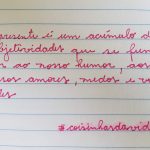 presente é um acúmulo d
bjetividades que se fun
s ao nosso humor, aos
sos amores, medos e v
des
#coisinhasdavid